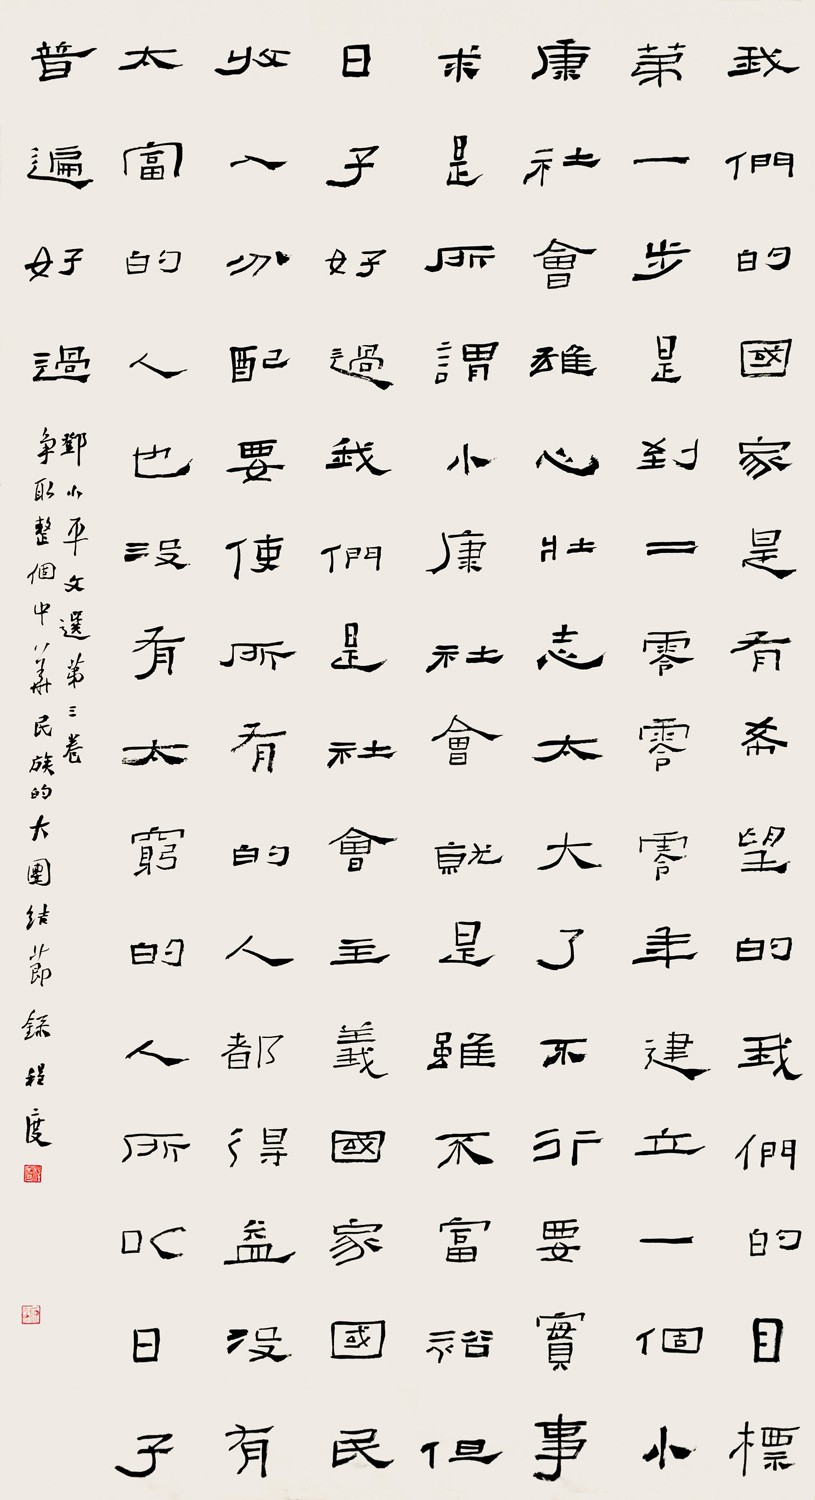 我們的國家是有希望的我們的目標
第一步是到二零零零年建立一個小
康社會雄心壯志太大了不行要實事
求是所謂小康社會就是雖不富裕但
日子好過我們是社會主義國家國民
收入分配要使所有的人都得益沒有
太富的人也沒有太窮的人所以日子
普遍好過
鄧小平文選第三卷
爭取整個中華民族的大團結節錄程度